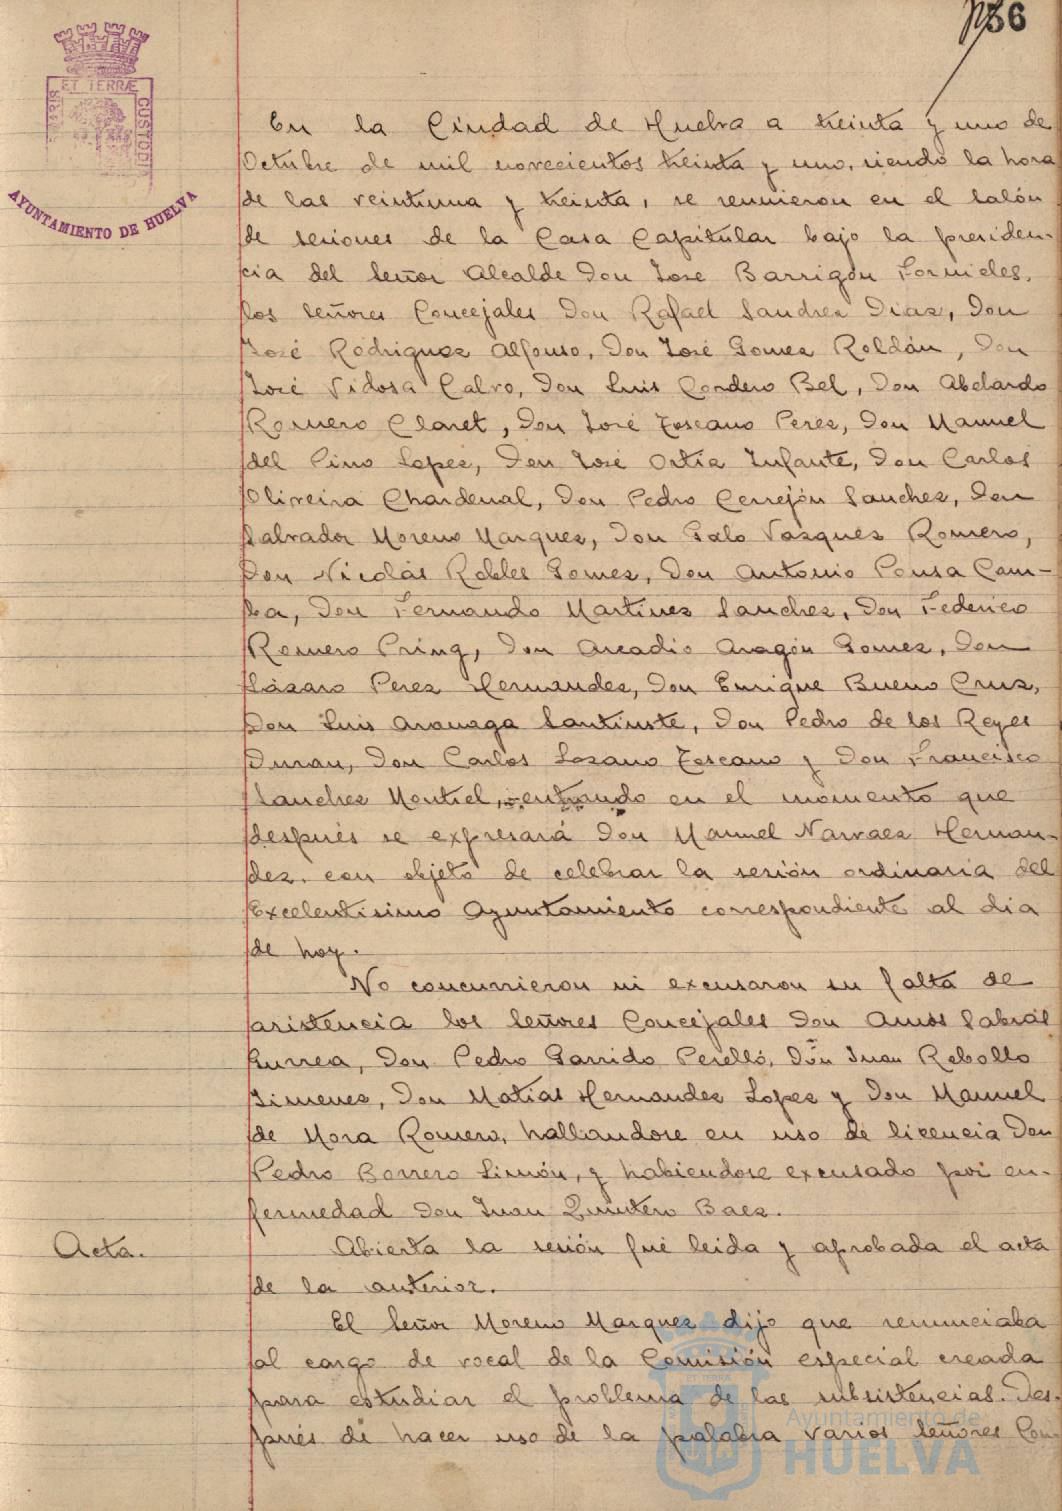 136
ET TERRÆ
CUSTODI
AYUNTAMIENTO DE HUELVA
En la Ciudad de Huelva a treinta y uno de
Octubre de mil novecientos treinta y uno, siendo la hora
de las veintiuna y treinta, se reunieron en el salón
de sesiones de la Casa Capitular bajo la presiden-
cia del Señor Alcalde Don José Barrigón Fornieles,
los Señores Concejales Don Rafael Sanchez Diaz, Don
José Rodriguez Alfonso, Don José Gomez Roldán, Don
José Vidosa Calvo, Don Luis Cordero Bel, Don Abelardo
Romero Claret, Don José Toscano Perez, Don Manuel
del Pino Lopez, Don José Ortiz Infante, Don Carlos
Oliveira Chardenal, Don Pedro Cerrejón Sanchez, Don
Salvador Moreno Marquez, Don Galo Vazquez Romero,
Don Nicolás Robles Gomez, Don Antonio Pousa Cam-
ba, Don Fernando Martinez Sanchez, Don Federico
Romero Pring, Don Arcadio Aragón Gomez, Don
Lázaro Perez Hernandez, Don Enrique Bueno Cruz,
Don Luis Aranaga Santiuste, Don Pedro de los Reyes
Duran, Don Carlos Lozano Toscano y Don Francisco
Sanchez Montiel, entrando en el momento que
después se expresará Don Manuel Narvaez Hernan-
dez. con objeto de celebrar la sesión ordinaria del
Excelentisimo Ayuntamiento correspondiente al dia
de hoy.
No concurrieron ni excusaron su falta de
asistencia los Señores Concejales Don Amós Sabrás
Gurrea, Don Pedro Garrido Perelló, Don Juan Rebollo
Jimenez, Don Matias Hernandez Lopez y Don Manuel
de Mora Romero, hallandose en uso de licencia Don
Pedro Borrero Limón, y habiendose excusado por en-
fermedad Don Juan Quintero Baez.
Acta.
Abierta la sesión fué leida y aprobada el acta
de la anterior.
El Señor Moreno Marquez dijo que renunciaba
al cargo de vocal de la Comisión especial creada
para estudiar el problema de las subsistencias. Des-
pués de hacer uso de la palabra varios Señores Con-
Ayuntamiento de
HUELVA